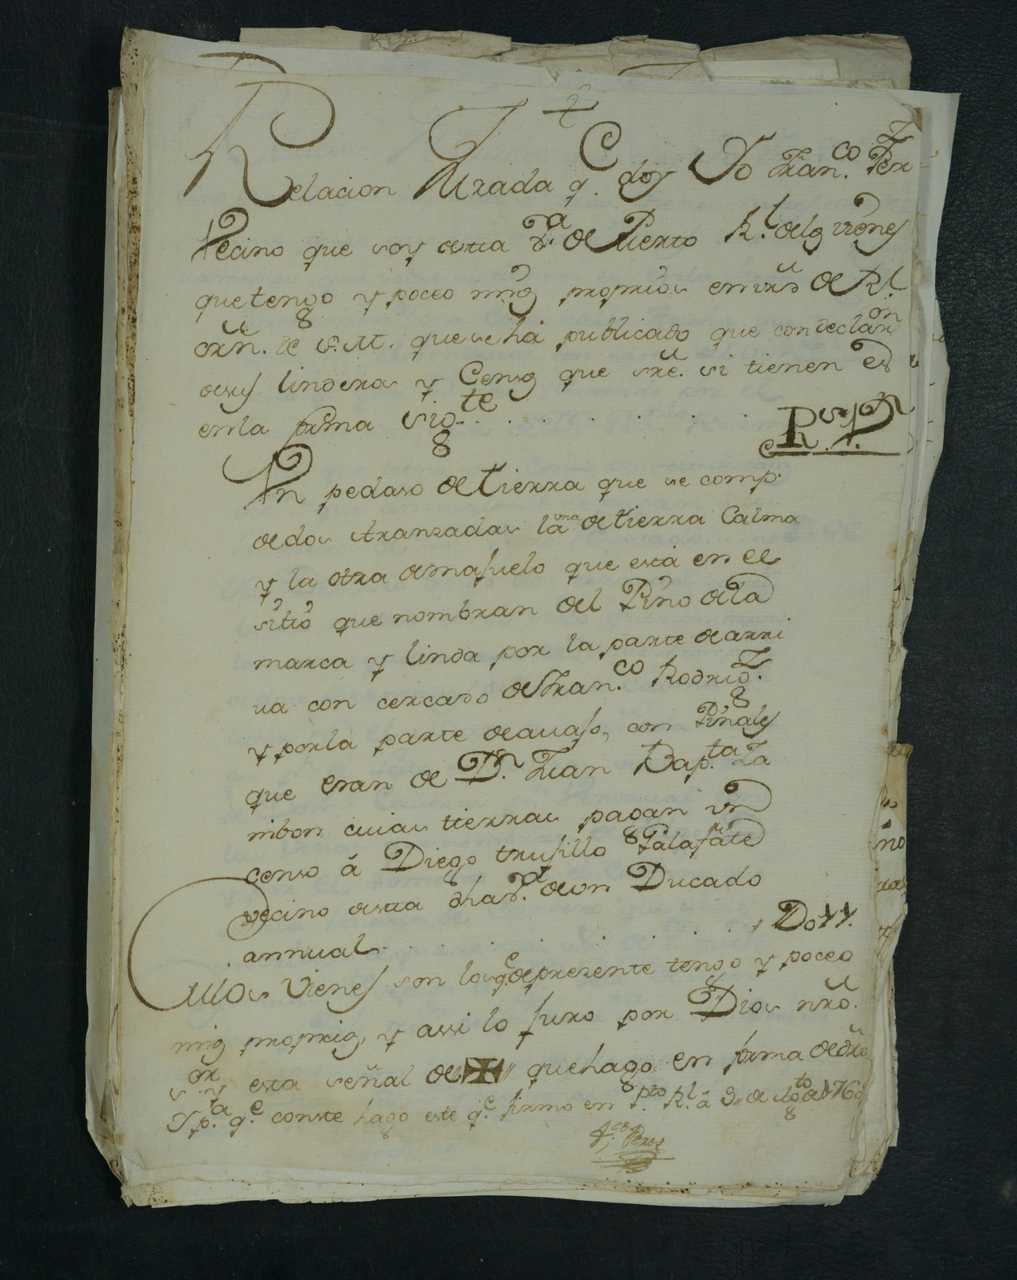 Relacion Jurada q.e doy Yo Fran.co Perz
Vecino que soy desta V.a de Puerto R.l de los vienes
que tengo y poceo mios proprios en virtd de Rl.
orñ. de S.M. que se há publicado que con declaron
desus linderos y Censos que sre. si tienen es
en la forma sigte . . . . . . . . Rs. Vn
Un pedaso de tierra que se comp.
de dos Aranzadas la una de tierra Calma
y la otra de majuelo que está en el
sitio que nombran del Pino de la
marca y linda por la parte de arri
va con cercado de Fran.co Rodrigz.
y por la parte de avajo, con Pinales
que eran de Dn. Juan Bap.ta Za
mbon cuias tierras pagan un
censo á Diego trujillo Palafate
vecino desta dha v.a de un Ducado
annual . . . . . . . . Do11.
Cuios Vienes son los q.e de precente tengo y poceo
mios proprios, y assi lo juro por Dios nrõ.
S.or y esta señal de ✠ que hago en forma de dro
Y p.a q.e conste hago este q.e firmo en P.to R.l á 30 de Ag.to de 1760
F.co Perez